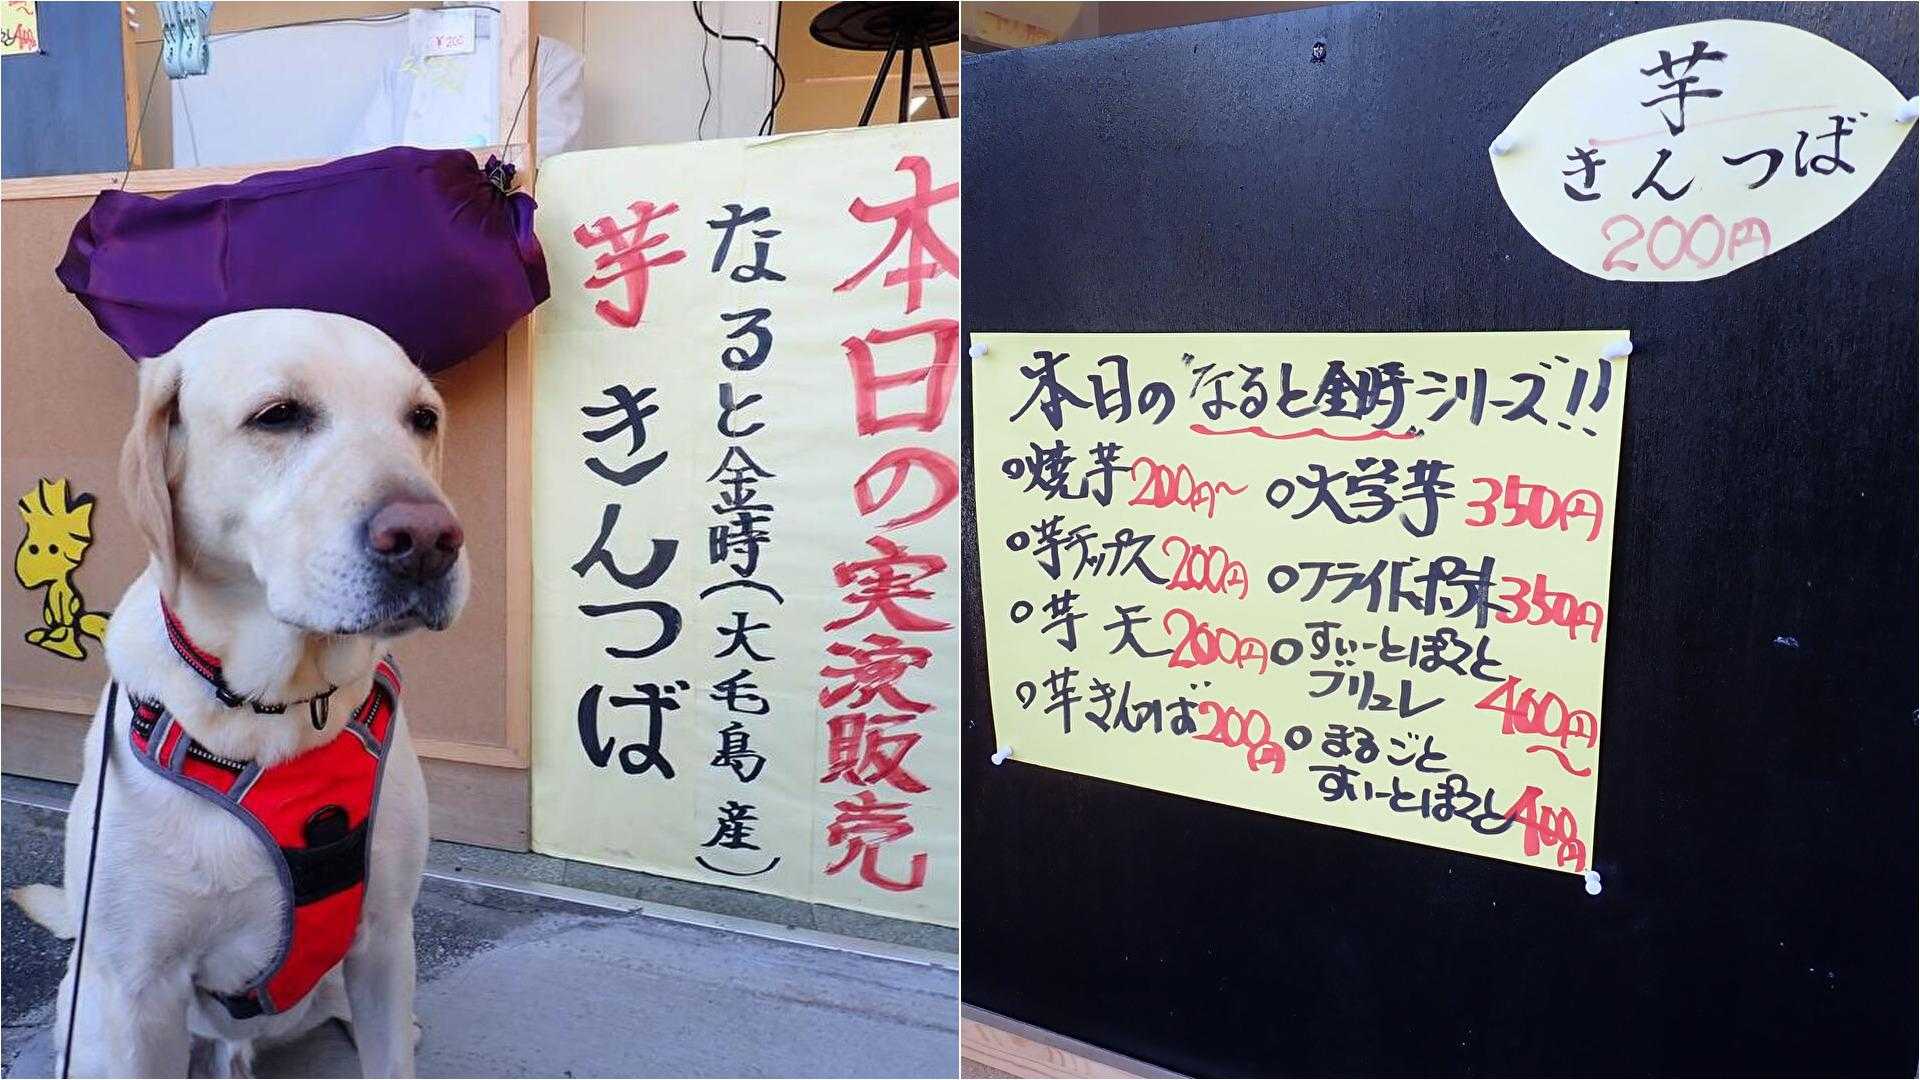 ¥200
本日の実演販売
なると金時(大毛島産)
芋きんつば
芋
きんつば
200円
本日の"なると金時"シリーズ!!
○焼芋200円~
○芋チップス200円
○芋天200円
○芋きんつば200円
○大学芋350円
○フライドポテト350円
○すぃーとぽてと
ブリュレ 400円~
○まるごと
すぃーとぽてと400円